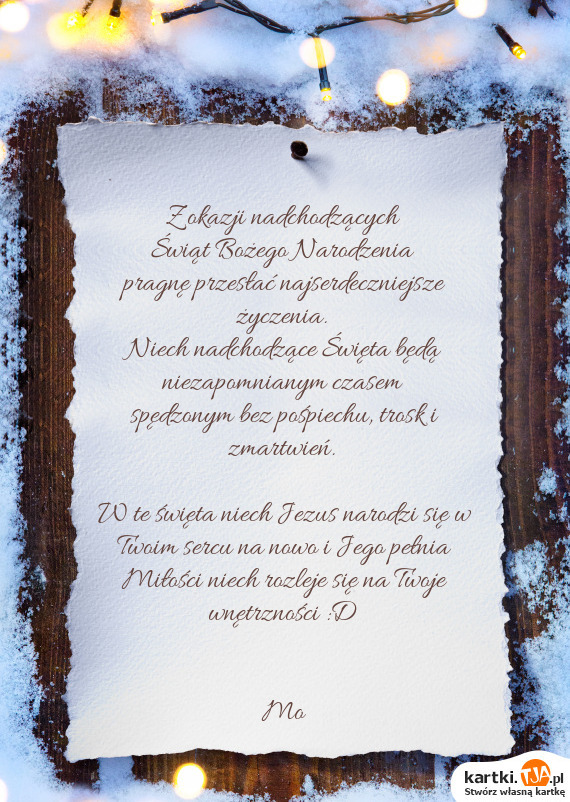 Z okazji nadchodzących
Świąt Bożego Narodzenia
pragnę przesłać najserdeczniejsze
życzenia.
Niech nadchodzące Święta będą
niezapomnianym czasem
spędzonym bez pośpiechu, trosk i
zmartwień.
W te święta niech Jezus narodzi się w
Twoim sercu na nowo i Jego pełnia
Miłości niech rozleje się na Twoje
wnętrzności :D
Mo
kartki.TJA.pl
Stwórz własną kartkę